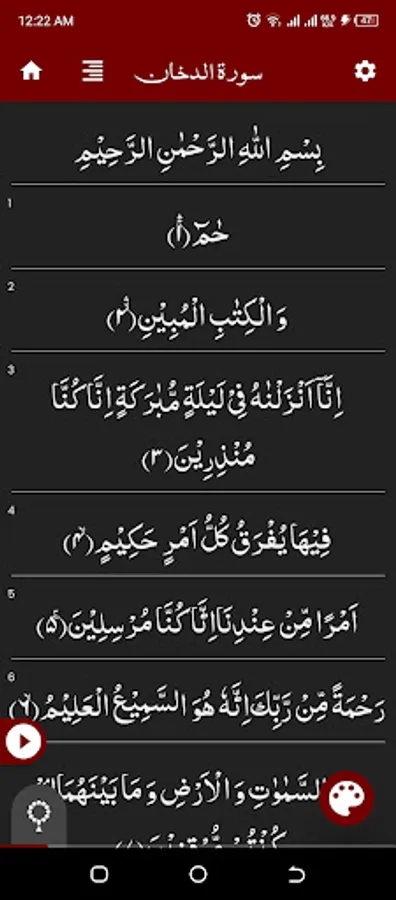 12:22 AM 47
سورة الدخان
بِسْمِ اللهِ الرَّحْمٰنِ الرَّحِيْمِ
1
حٰمٓ ﴿١﴾
2
وَالْكِتٰبِ الْمُبِيْنِ ﴿٢﴾
3
اِنَّاۤ اَنْزَلْنٰهُ فِيْ لَيْلَةٍ مُّبٰرَكَةٍ اِنَّا كُنَّا
مُنْذِرِيْنَ ﴿٣﴾
4
فِيْهَا يُفْرَقُ كُلُّ اَمْرٍ حَكِيْمٍ ﴿۴﴾
5
اَمْرًا مِّنْ عِنْدِنَا اِنَّا كُنَّا مُرْسِلِيْنَ ﴿۵﴾
6
رَحْمَةً مِّنْ رَّبِّكَ اِنَّهٗ هُوَ السَّمِيْعُ الْعَلِيْمُ ﴿٦﴾
السَّمٰوٰتِ وَالْاَرْضِ وَمَا بَيْنَهُمَا